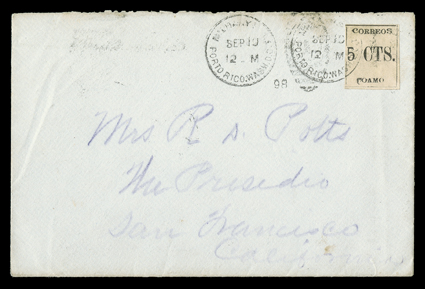 SEP 10
12 M
PORTO RICO, WASH. D.C.
98
SEP 10
12 M
PORTO RICO, WASH
CORREOS
5 CTS.
COAMO
Mrs R. D. Potts
The Presidio
San Francisco
California